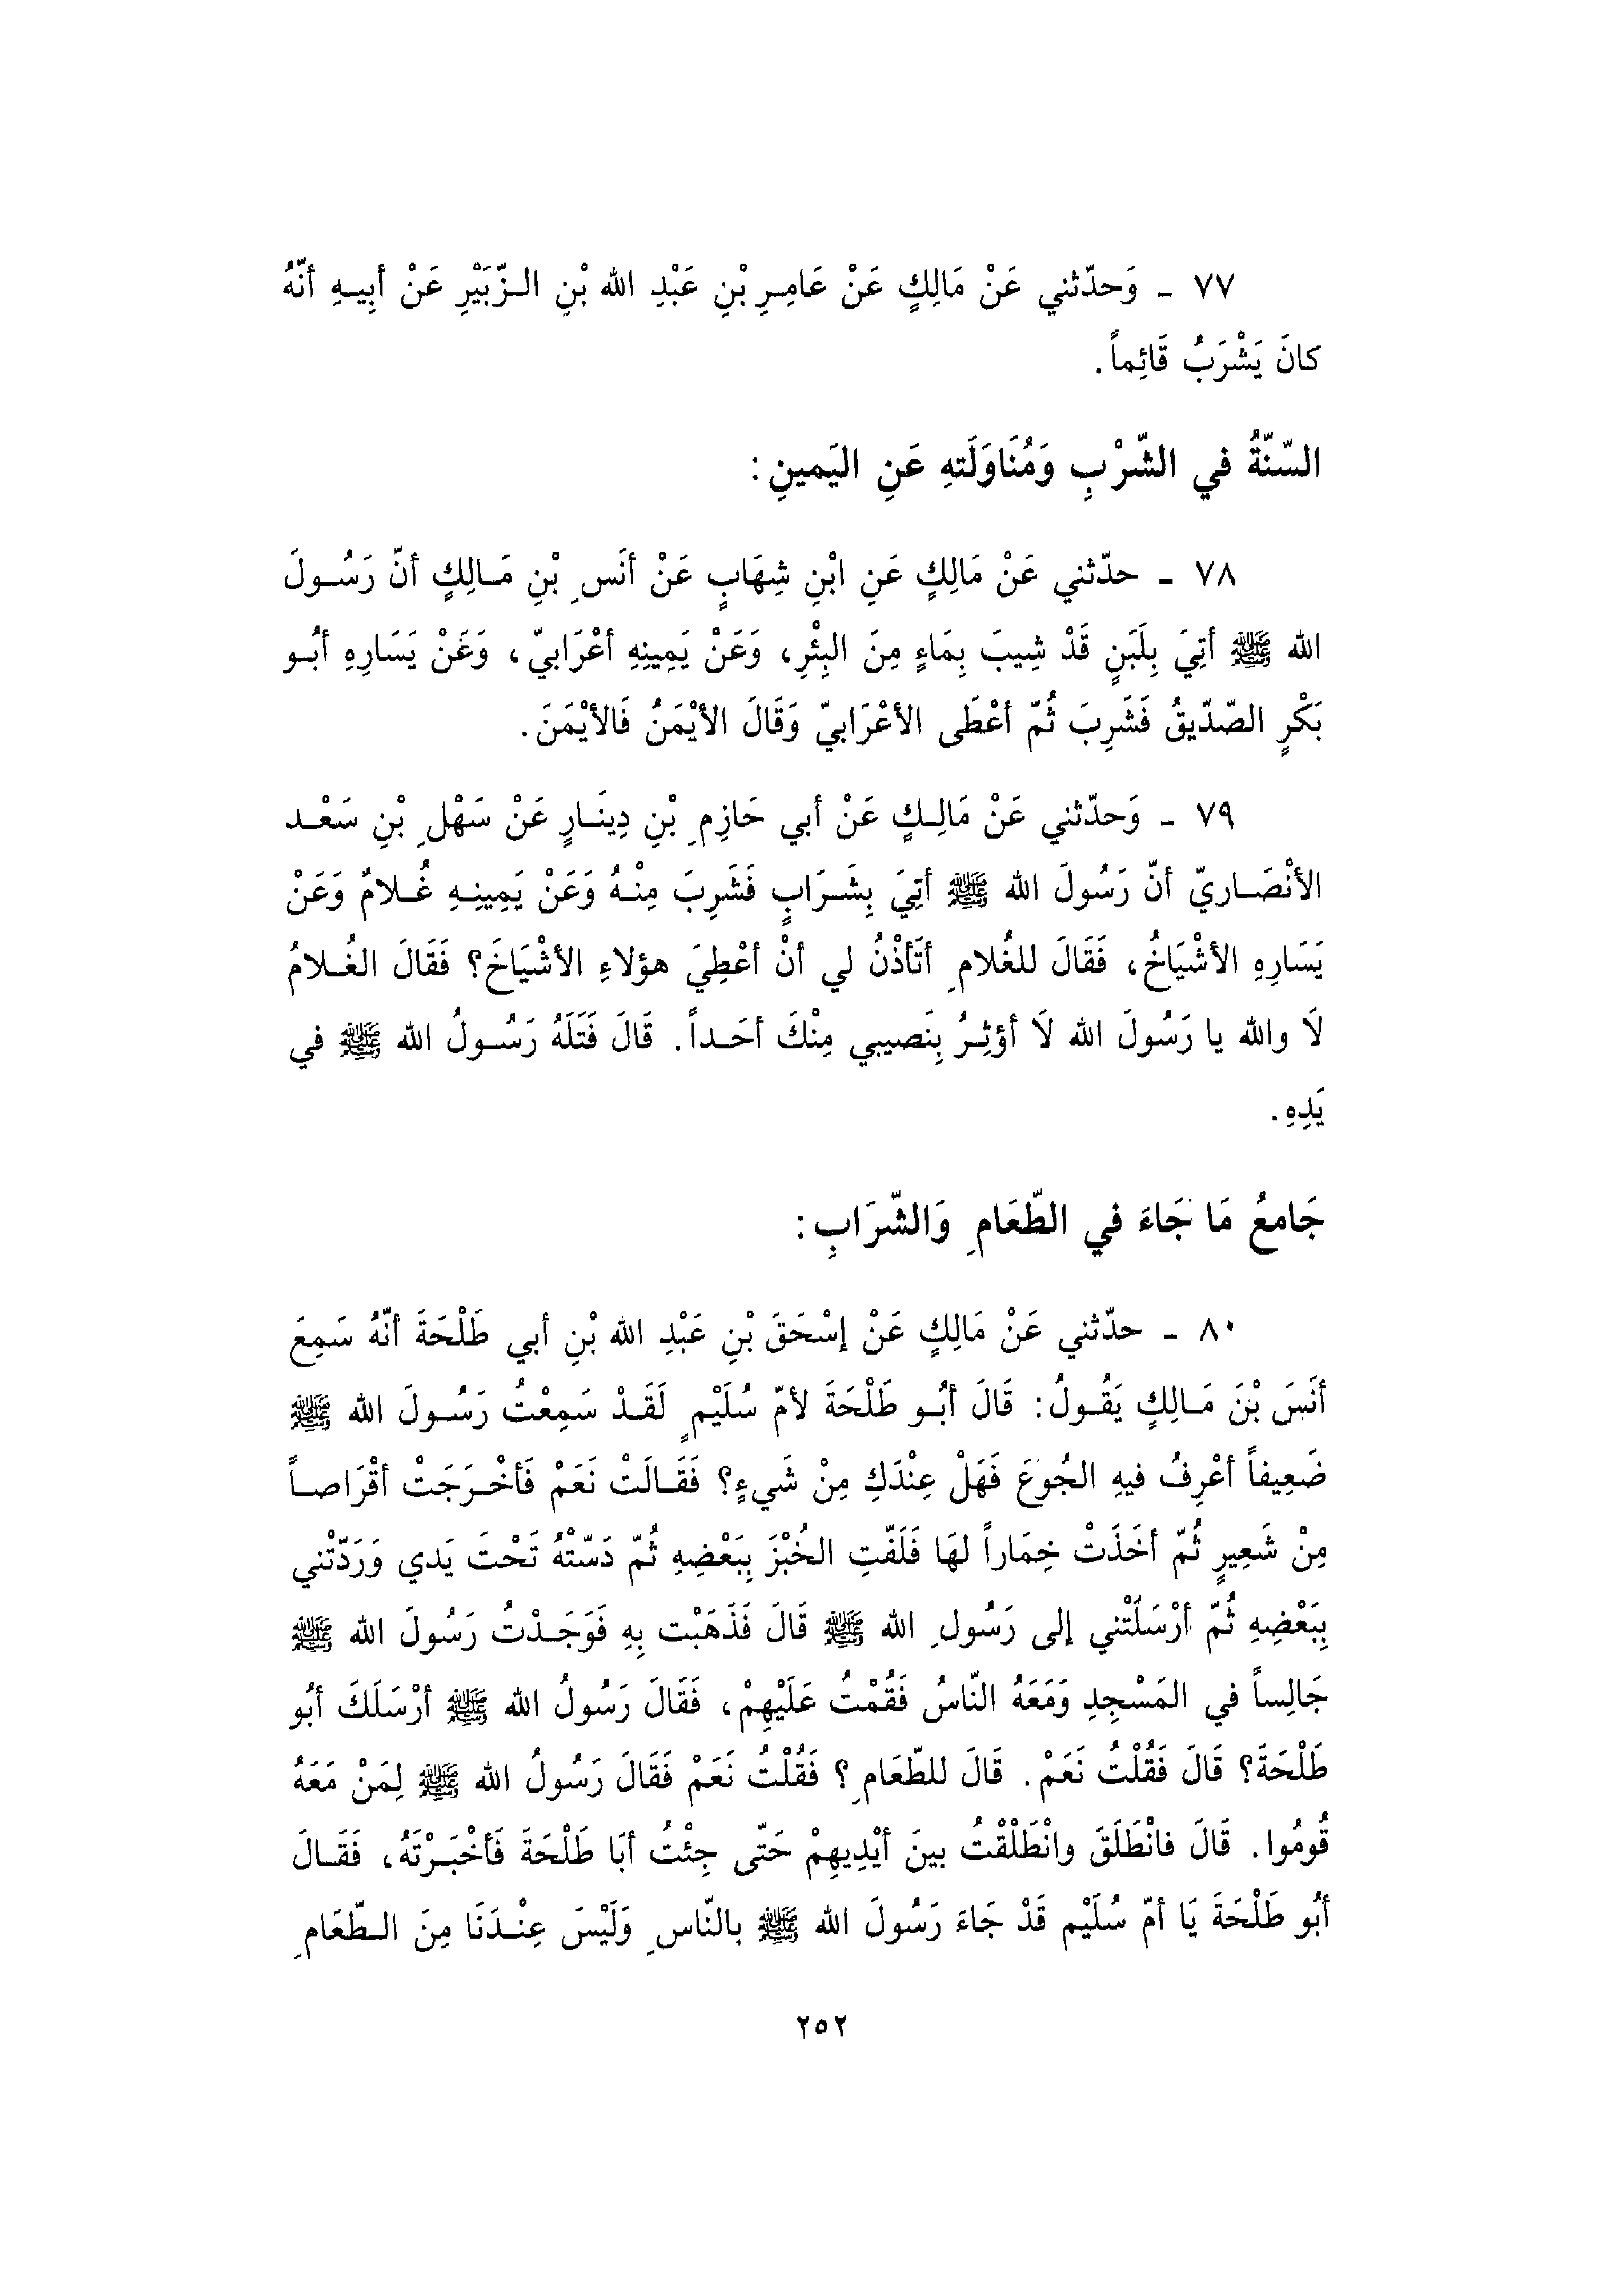 ٧٧ ـ وَحدّثني عَنْ مَالِكٍ عَنْ عَامِرِ بْنِ عَبْدِ الله بْنِ الـزّبَيْرِ عَنْ أبِيـهِ أنّهُ
كانَ يَشْرَبُ قَائِماً.
السّنّةُ في الشّرْبِ وَمُنَاوَلَتهِ عَنِ اليَمينِ:
٧٨ ـ حدّثني عَنْ مَالِكٍ عَنِ ابْنِ شِهَابٍ عَنْ أنَسِ بْنِ مَـالِكٍ أنّ رَسُـولَ
الله ﷺ أتِيَ بِلَبَنٍ قَدْ شِيبَ بِمَاءٍ مِنَ البِئْرِ، وَعَنْ يَمِينِهِ أعْرَابيّ، وَعَنْ يَسَارِهِ أبُـو
بَكْرٍ الصّدّيقُ فَشَرِبَ ثُمّ أعْطَى الأعْرَابيّ وَقَالَ الأيْمَنُ فَالأيْمَنَ.
٧٩ ـ وَحدّثني عَنْ مَالِـكٍ عَنْ أبي حَازِمِ بْنِ دِينَـارٍ عَنْ سَهْلِ بْنِ سَعْـد
الأنْصَـاريّ أنّ رَسُولَ الله ﷺ أتِيَ بِشَـرَابٍ فَشَرِبَ مِنْـهُ وَعَنْ يَمِينِـهِ غُـلامٌ وَعَنْ
يَسَارِهِ الأشْيَاخُ، فَقَالَ للغُلامِ أتَأذْنُ لي أنْ أعْطِيَ هؤلاءِ الأشْيَاخَ؟ فَقَالَ الغُـلامُ
لَا والله يا رَسُولَ الله لَا أؤثِـرُ بِنَصيبي مِنْكَ أحَـداً. قَالَ فَتَلَهُ رَسُـولُ الله ﷺ في
يَدِهِ.
جَامعُ مَا جَاءَ في الطّعَامِ وَالشّرَابِ:
٨٠ ـ حدّثني عَنْ مَالِكٍ عَنْ إسْحَقَ بْنِ عَبْدِ الله بْنِ أبي طَلْحَةَ أنّهُ سَمِعَ
أنَسَ بْنَ مَـالِكٍ يَقُـولُ: قَالَ أبُـو طَلْحَةَ لأمّ سُلَيْمٍ لَقَـدْ سَمِعْتُ رَسُـولَ الله ﷺ
ضَعِيفاً أعْرِفُ فيهِ الجُوعَ فَهَلْ عِنْدَكِ مِنْ شَيءٍ؟ فَقَـالَتْ نَعَمْ فَأخْـرَجَتْ أقْرَاصـاً
مِنْ شَعِيرٍ ثُمّ أخَذَتْ خِمَاراً لهَا فَلَفّتِ الخُبْزَ بِبَعْضِهِ ثُمّ دَسّتْهُ تَحْتَ يَدي وَرَدّتْني
بِبَعْضِهِ ثُمّ أرْسَلَتْني إلى رَسُولِ الله ﷺ قَالَ فَذَهَبْت بِهِ فَوَجَـدْتُ رَسُولَ الله ﷺ
جَالِساً في المَسْجِدِ وَمَعَهُ النّاسُ فَقُمْتُ عَلَيْهِمْ، فَقَالَ رَسُولُ الله ﷺ أرْسَلَكَ أبُو
طَلْحَةَ؟ قَالَ فَقُلْتُ نَعَمْ. قَالَ للطّعَامِ؟ فَقُلْتُ نَعَمْ فَقَالَ رَسُولُ الله ﷺ لِمَنْ مَعَهُ
قُومُوا. قَالَ فانْطَلَقَ وانْطَلْقْتُ بينَ أيْدِيهِمْ حَتّى جِئْتُ أبَا طَلْحَةَ فَأخْبَـرْتَهُ، فَقَـالَ
أبُو طَلْحَةَ يَا أمّ سُلَيْم قَدْ جَاءَ رَسُولَ الله ﷺ بالنّاسِ وَلَيْسَ عِنْـدَنَا مِنَ الـطّعَامِ
٢٥٢